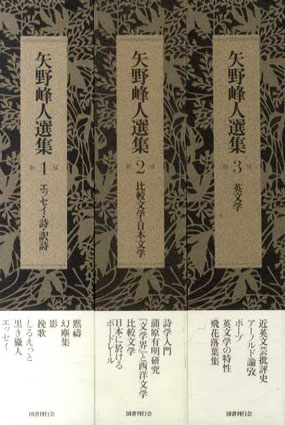 矢野峰人選集
1
エッセイ・詩・訳詩
黙禱
幻塵集
影
挽歌
しるえっと
黒き獵人
エッセイ
国書刊行会
矢野峰人選集
2
比較文学・日本文学
詩学入門
蒲原有明研究
『文学界』と西洋文学
比較文学
日本に於ける
ボードレール
国書刊行会
矢野峰人選集
3
英文学
近英文芸批評史
アーノルド論攷
ポープ
英文学の特性
飛花落葉集
国書刊行会